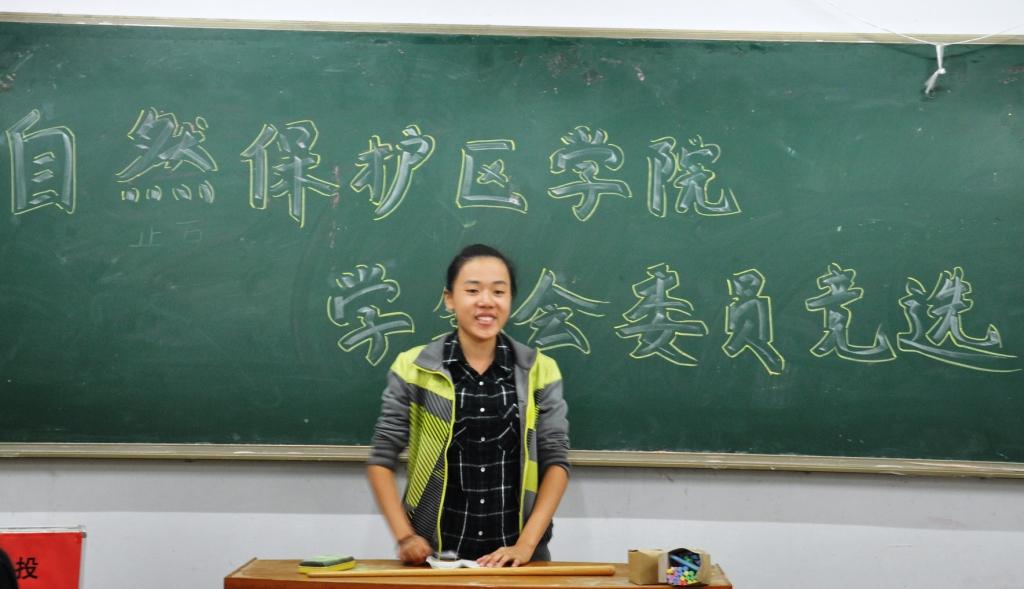 自然保护区学院
学 会委员竞选
投